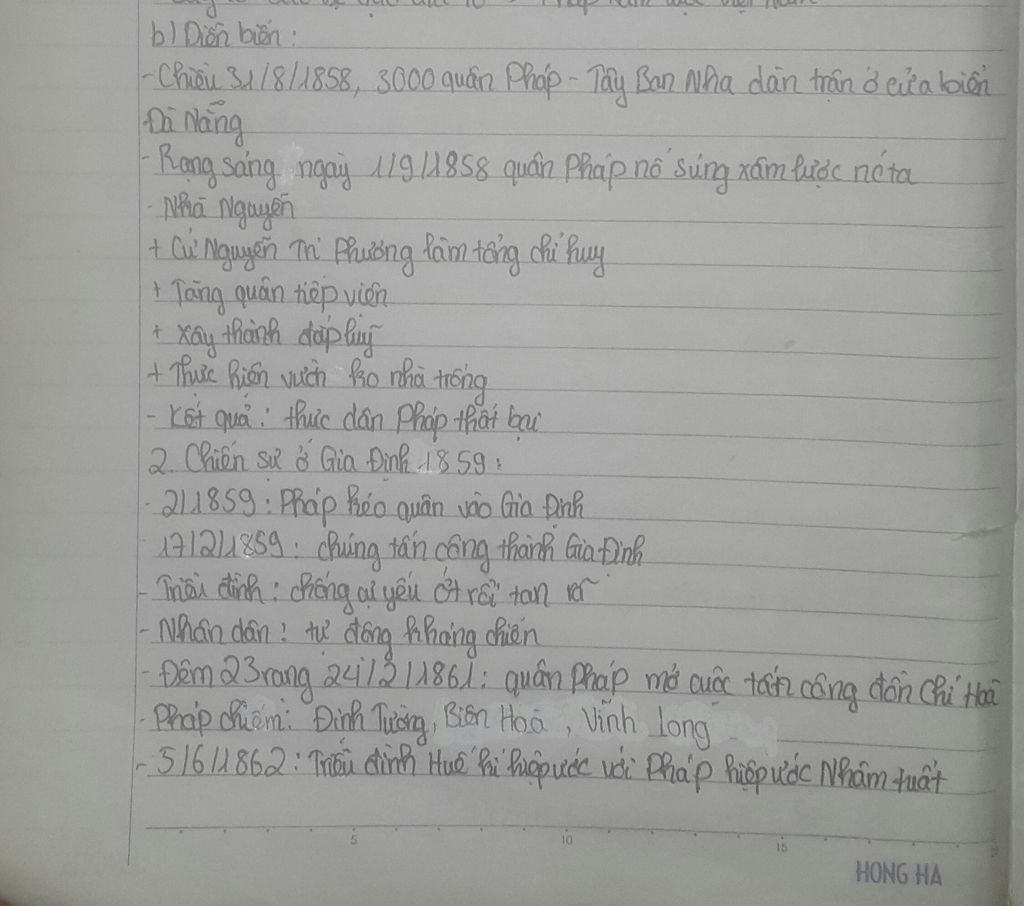 b) Diễn biến:
- Chiều 31/8/1858, 3000 quân Pháp - Tây Ban Nha dàn trận ở cửa biển
Đà Nẵng
- Rạng sáng ngày 1/9/1858 quân Pháp nổ súng xâm lược nc ta
- Nhà Nguyễn
+ Cử Nguyễn Tri Phương làm tổng chỉ huy
+ Tăng quân tiếp viện
+ Xây thành đắp luỹ
+ Thực hiện vườn ko nhà trống
- Kết quả: thực dân Pháp thất bại
2. Chiến sự ở Gia Định 1859:
- 2/1859: Pháp kéo quân vào Gia Định
17/2/1859: chúng tấn công thành Gia Định
- Triều đình: chống cự yếu ớt rồi tan rã
- Nhân dân: tự động kháng chiến
- Đêm 23 rạng 24/2/1861: quân Pháp mở cuộc tấn công đồn Chí Hoà
- Pháp chiếm: Định Tường, Biên Hoà, Vĩnh Long
- 5/6/1862: Triều đình Huế kí hiệp ước với Pháp hiệp ước Nhâm tuất
5 10 15
HONG HA